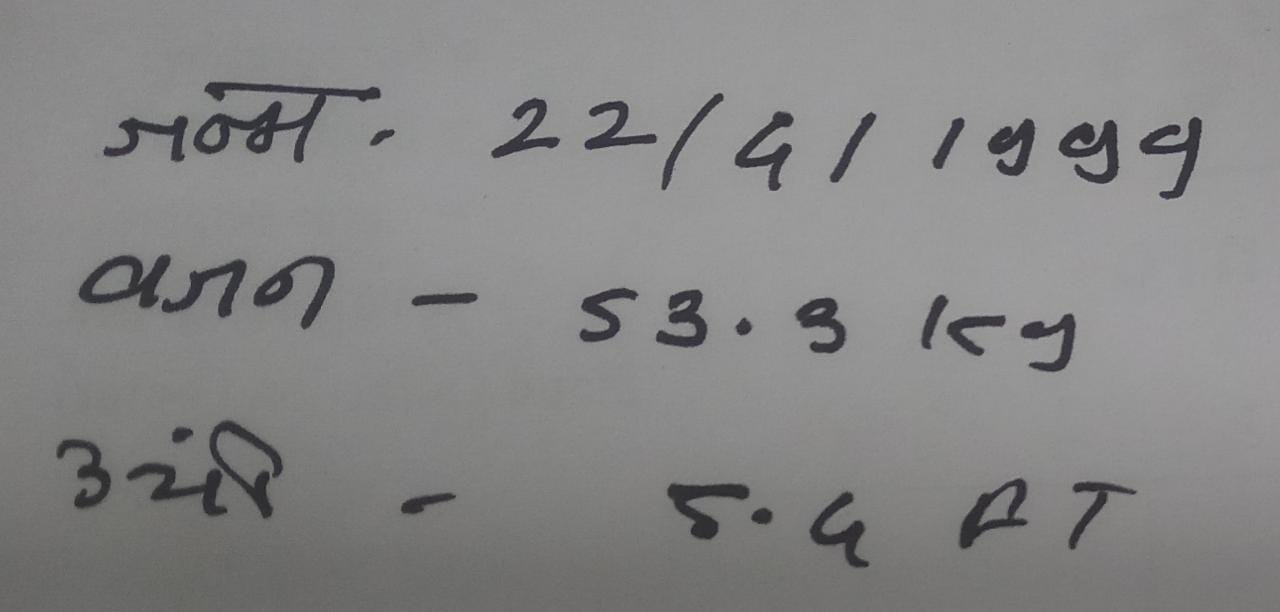 जन्म. 22/4/1999
वजन - 53.3 kg
उंची - 5.4 FT